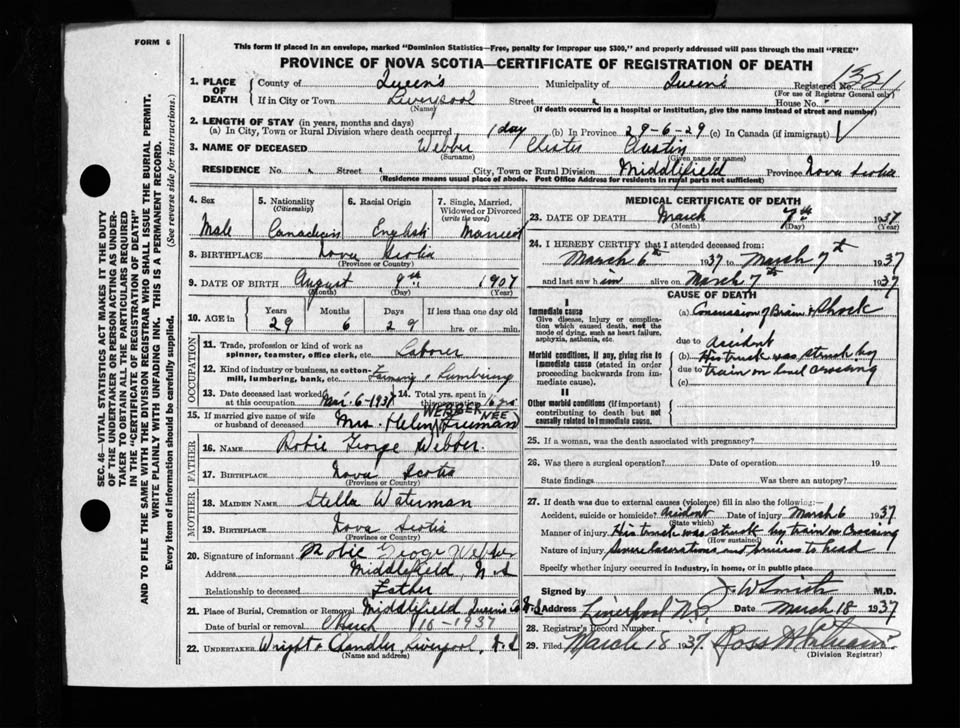 FORM 6
This form if placed in an envelope, marked "Dominion Statistics—Free, penalty for improper use $300," and properly addressed will pass through the mail "FREE"
PROVINCE OF NOVA SCOTIA—CERTIFICATE OF REGISTRATION OF DEATH
1. PLACE OF DEATH County of Queen's Municipality of Queen's Registered No. 1351
(For use of Registrar General only)
If in City or Town Liverpool Street House No.
(Name) (If death occurred in a hospital or institution, give the name instead of street and number)
2. LENGTH OF STAY (in years, months and days)
(a) In City, Town or Rural Division where death occurred 1 day (b) In Province 29-6-29 (c) In Canada (if immigrant)
3. NAME OF DECEASED Webber Chester Austin
(Surname) (Given name or names)
RESIDENCE No. Street City, Town or Rural Division Middlefield Province Nova Scotia
(Residence means usual place of abode. Post Office Address for residents in rural parts not sufficient)
4. Sex Male
5. Nationality (Citizenship) Canadian
6. Racial Origin English
7. Single, Married, Widowed or Divorced (write the word) Married
8. BIRTHPLACE Nova Scotia
(Province or Country)
9. DATE OF BIRTH August 9th 1907
(Month) (Day) (Year)
10. AGE in Years 29 Months 6 Days 29 If less than one day old hrs. or min.
OCCUPATION
11. Trade, profession or kind of work as spinner, teamster, office clerk, etc. Laborer
12. Kind of industry or business, as cotton-mill, lumbering, bank, etc. Farming & Lumbering
13. Date deceased last worked at this occupation Mar. 6-1937 14. Total yrs. spent in this occupation
15. If married give name of wife or husband of deceased Mrs. Helen WEBBER (NEE) Freeman
FATHER
16. NAME Robie George Webber.
17. BIRTHPLACE Nova Scotia
(Province or Country)
MOTHER
18. MAIDEN NAME Stella Waterman
19. BIRTHPLACE Nova Scotia
(Province or Country)
20. Signature of informant Robie George Webber
Address Middlefield, N.S
Relationship to deceased Father
21. Place of Burial, Cremation or Removal Middlefield Queens Co N.S
Date of burial or removal March 10-1937
22. UNDERTAKER Wright & Chandler, Liverpool, N.S
(Name and address)
MEDICAL CERTIFICATE OF DEATH
23. DATE OF DEATH March 7th 1937
(Month) (Day) (Year)
24. I HEREBY CERTIFY that I attended deceased from:
March 6th 1937 to March 7th 1937
and last saw him alive on March 7th 1937
CAUSE OF DEATH
I
Immediate cause
Give disease, injury or complication which caused death, not the mode of dying, such as heart failure, asphyxia, asthenia, etc.
(a) Concussion of Brain & Shock
due to accident
Morbid conditions, if any, giving rise to immediate cause (stated in order proceeding backwards from immediate cause).
(b) His truck was struck by
due to train on level crossing
(c)
II
Other morbid conditions (if important) contributing to death but not causally related to immediate cause.
25. If a woman, was the death associated with pregnancy?
26. Was there a surgical operation? Date of operation 19
State findings Was there an autopsy?
27. If death was due to external causes (violence) fill in also the following:—
Accident, suicide or homicide? accident Date of injury March 6 1937
(State which)
Manner of injury His truck was struck by train on Crossing
(How sustained)
Nature of injury Severe lacerations and bruises to head
Specify whether injury occurred in Industry, in home, or in public place
Signed by J. W Smith M.D.
Address Liverpool N.S. Date March 18 1937
28. Registrar's Record Number
29. Filed March 18 1937 Ross
(Division Registrar)
SEC. 46—VITAL STATISTICS ACT MAKES IT THE DUTY
OF THE UNDERTAKER OR PERSON ACTING AS UNDER-
TAKER TO OBTAIN ALL THE PARTICULARS REQUIRED
IN THE "CERTIFICATE OF REGISTRATION OF DEATH"
AND TO FILE THE SAME WITH THE DIVISION REGISTRAR WHO SHALL ISSUE THE BURIAL PERMIT.
WRITE PLAINLY WITH UNFADING INK. THIS IS A PERMANENT RECORD.
Every item of information should be carefully supplied. (See reverse side for instructions.)